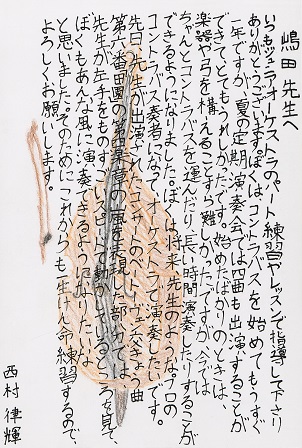 嶋田先生へ
いつもジュニアオーケストラのパート練習やレッスンで指導して下さり
ありがとうございます。ぼくはコントラバスを始めてもうすぐ
一年ですが、夏の定期演奏会では四曲も出演することが
できて、とてもうれしかったです。始めたばかりのときは、
楽器や弓を構えることすら難しかったですが、今では
ちゃんとコントラバスを運んだり、長い時間演奏したりすることが
できるようになりました。ぼくは将来、先生のようなプロの
コントラバス奏者になってオーケストラで演奏したいです。
先日、先生が出演されたコンサートのベートーヴェン交きょう曲
第六番田園の第四楽章の嵐を表現した部分では、
先生が左手をものすごいスピードで動かしているところを見て、
ぼくもあんな風に演奏できるようになりたいな
と思いました。そのためにこれからも一生けん命練習するので、
よろしくお願いします。
西村律輝